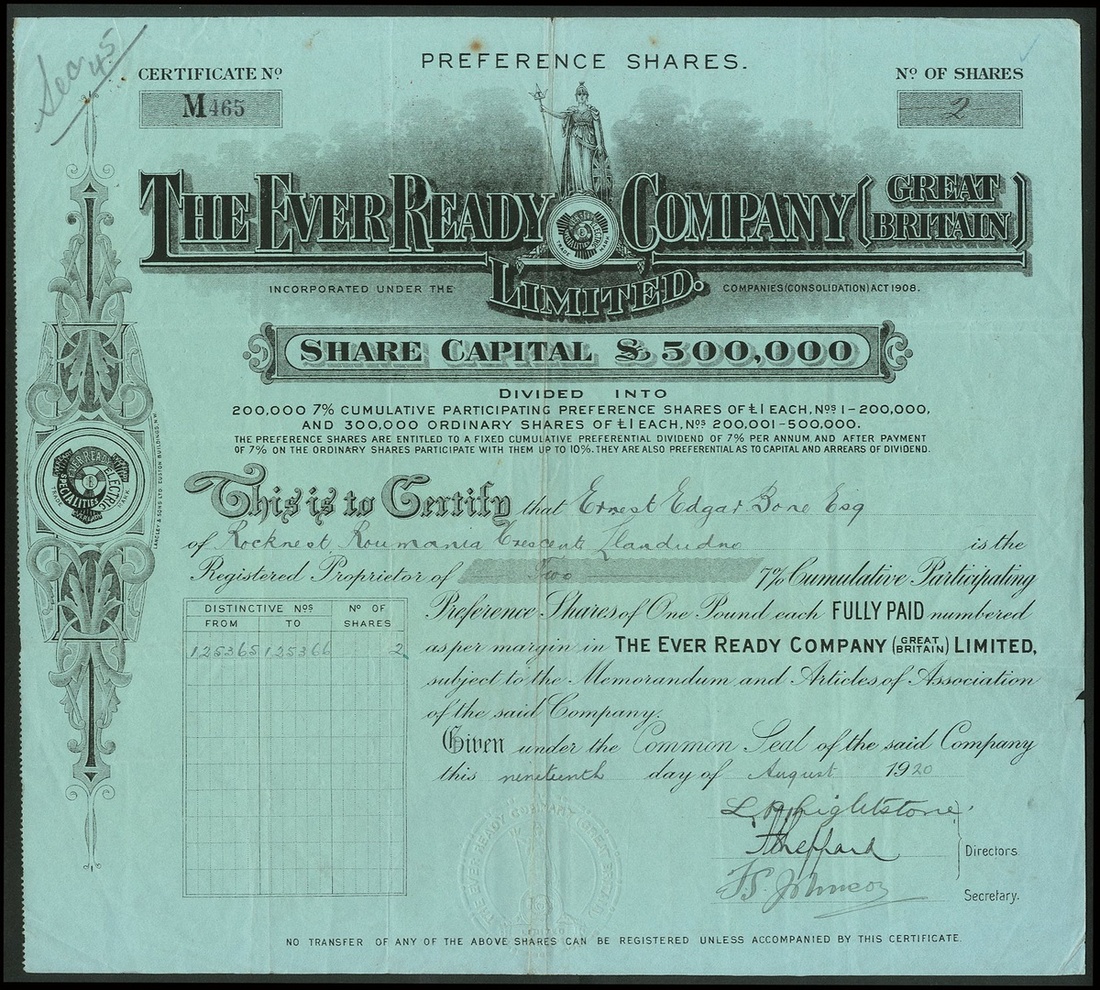 PREFERENCE SHARES.
CERTIFICATE No
M465
No OF SHARES
2
THE EVER READY COMPANY (GREAT BRITAIN)
LIMITED.
INCORPORATED UNDER THE COMPANIES (CONSOLIDATION) ACT 1908.
SHARE CAPITAL £500,000
DIVIDED INTO
200,000 7% CUMULATIVE PARTICIPATING PREFERENCE SHARES OF £1 EACH, Nos 1-200,000,
AND 300,000 ORDINARY SHARES OF £1 EACH, Nos 200,001-500,000.
THE PREFERENCE SHARES ARE ENTITLED TO A FIXED CUMULATIVE PREFERENTIAL DIVIDEND OF 7% PER ANNUM, AND AFTER PAYMENT
OF 7% ON THE ORDINARY SHARES PARTICIPATE WITH THEM UP TO 10%. THEY ARE ALSO PREFERENTIAL AS TO CAPITAL AND ARREARS OF DIVIDEND.
EVER READY
ELECTRIC
SPECIALITIES
TRADE MARK
LANGLEY & SONS LTD. EUSTON BUILDINGS, N.W.
This is to Certify that Ernest Edgar Bone Esq
of Rocknest, Roumania Crescent, Llandudno is the
Registered Proprietor of Two 7% Cumulative Participating
Preference Shares of One Pound each FULLY PAID numbered
as per margin in THE EVER READY COMPANY (GREAT BRITAIN) LIMITED,
subject to the Memorandum and Articles of Association
of the said Company.
DISTINCTIVE Nos
FROM TO
No OF SHARES
125365 125366 2
Given under the Common Seal of the said Company
this nineteenth day of August 1920
Directors.
Secretary.
THE EVER READY COMPANY (GREAT BRITAIN)
LIMITED
NO TRANSFER OF ANY OF THE ABOVE SHARES CAN BE REGISTERED UNLESS ACCOMPANIED BY THIS CERTIFICATE.